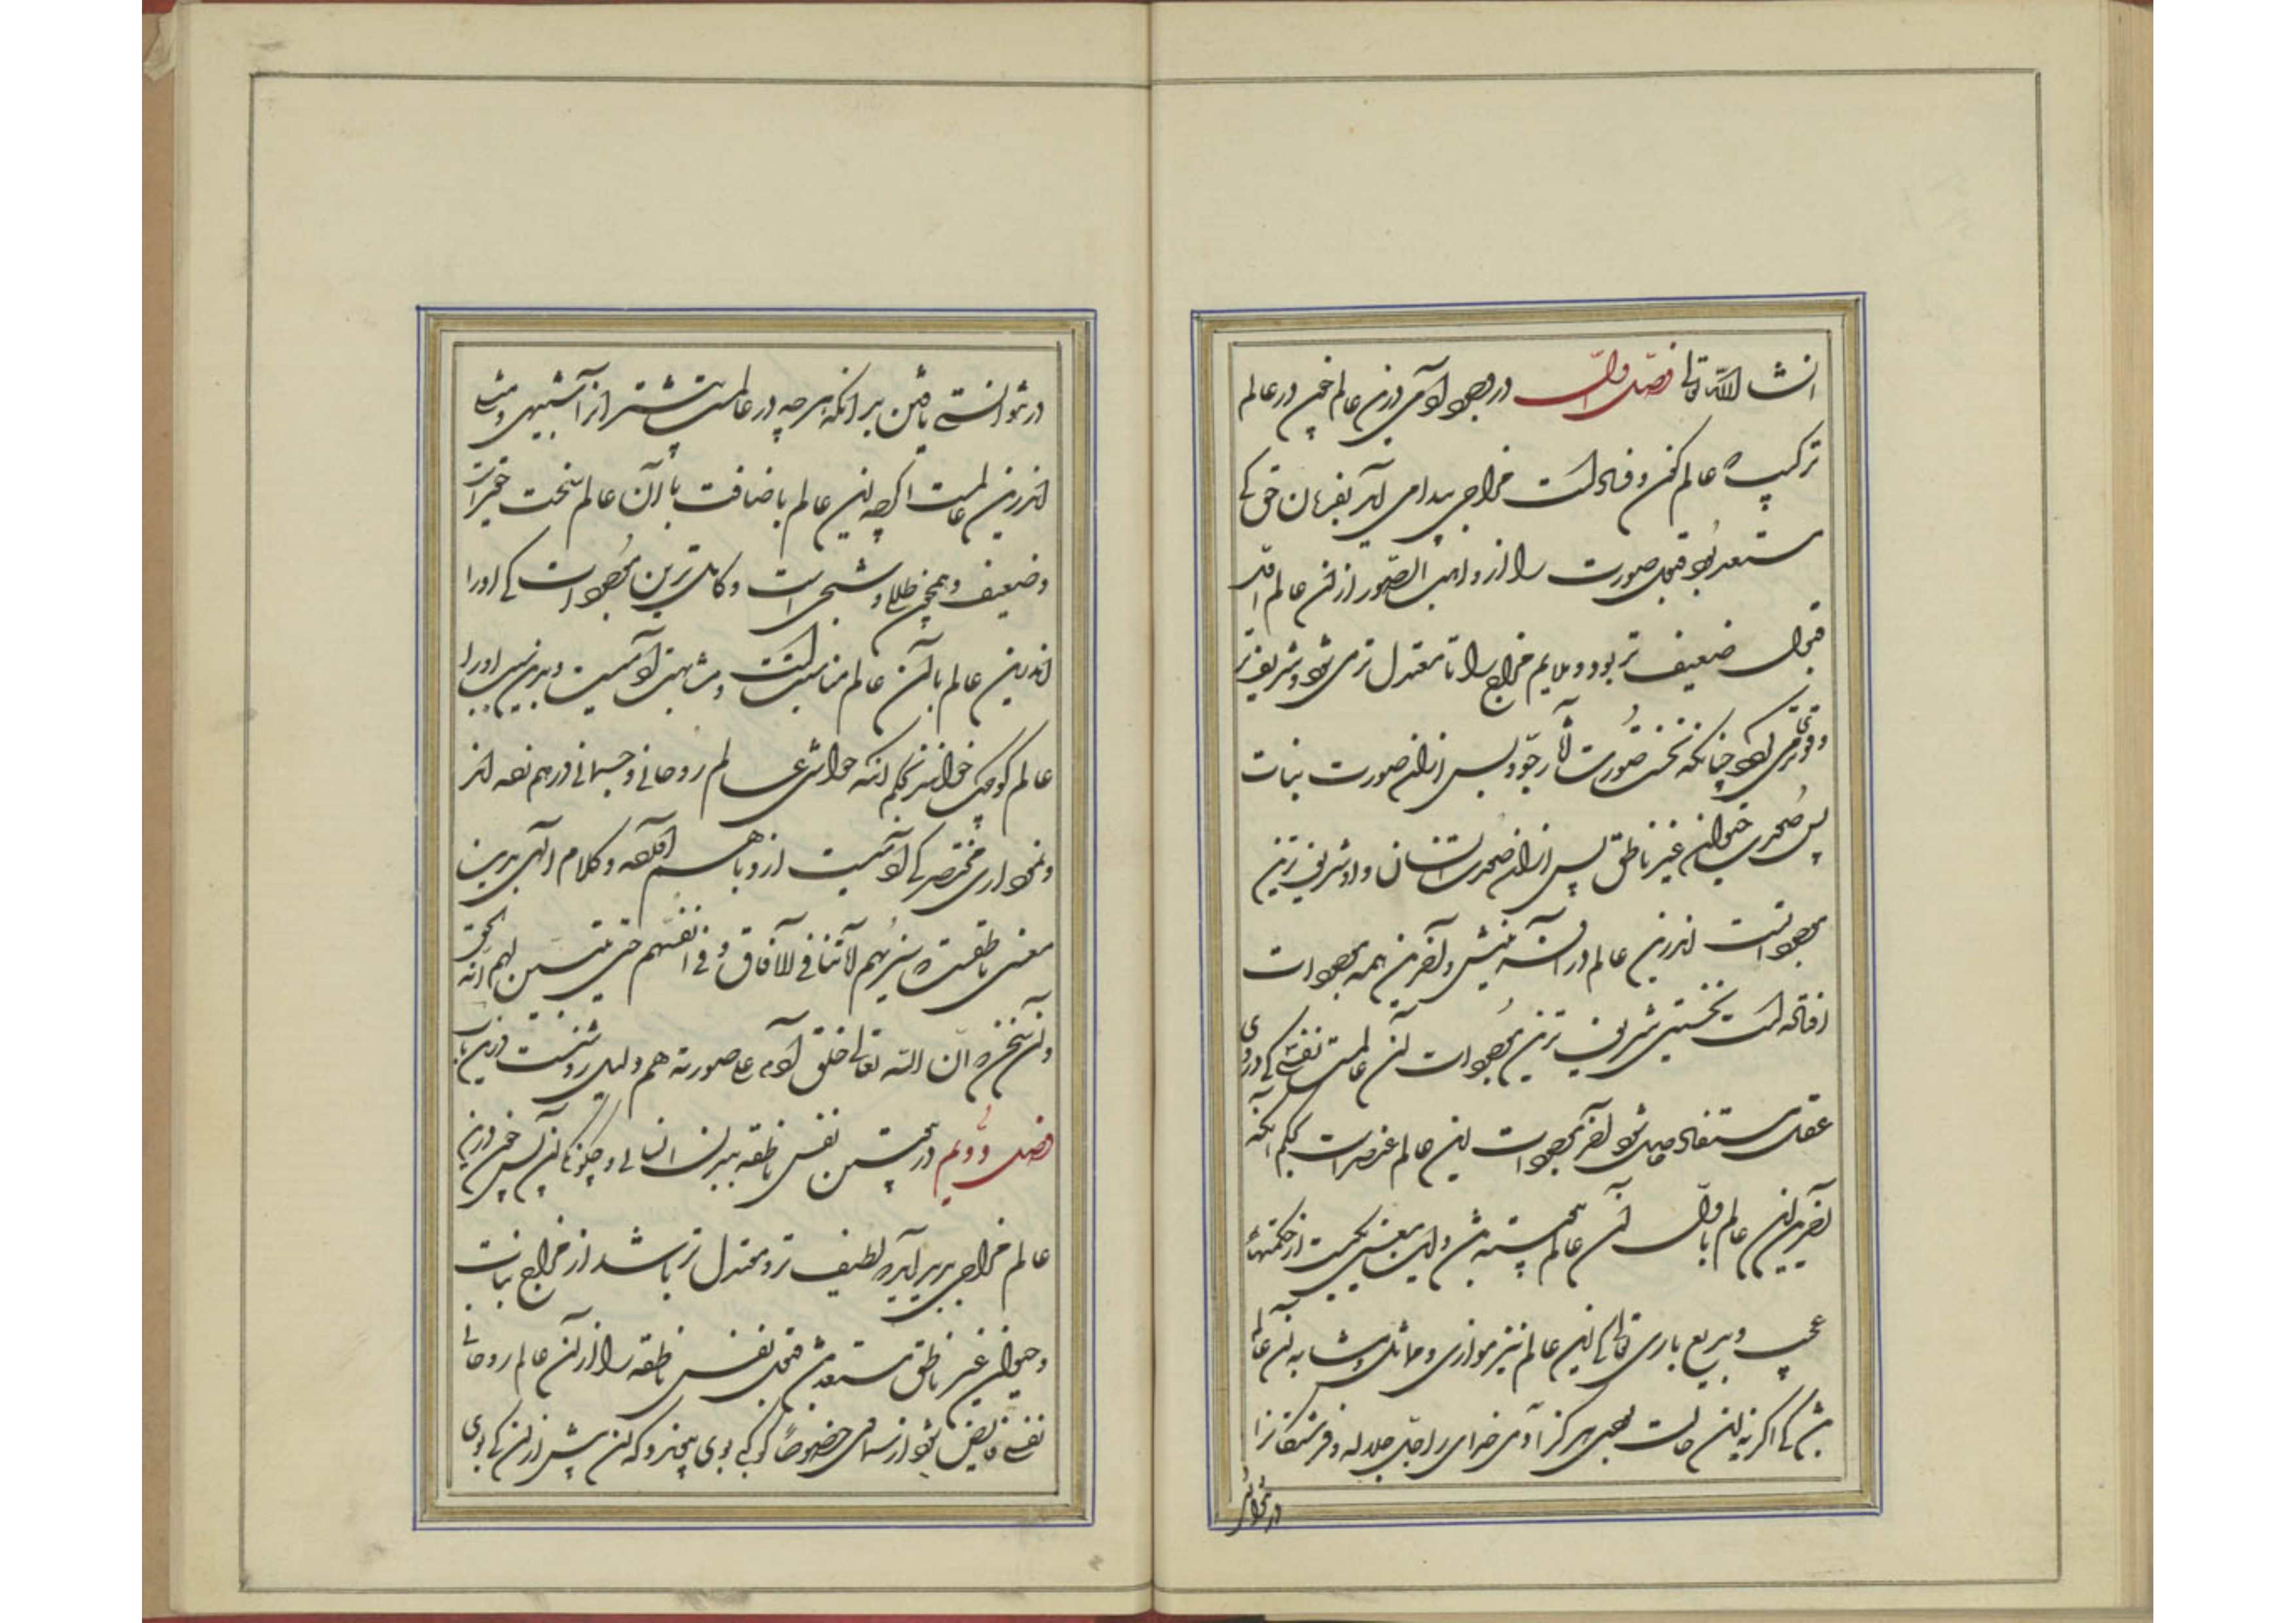 انشاالله تعالی فصل اول در وجود آدمی درین عالم چون در عالم
ترکیب که عالم کون و فسادست مزاجی پیدا می آید بفرمان حق کی
مستعد بود قبول صورت را از واهب الصور ازین عالم اگر
قبول ضعیف تر بود و ملایم مزاج را تا معتدل تر می شود و شریف تر
و قوی تر می شود چنانکه نخست صورت آثار جو و پس ازان صورت نبات
پس صورت حیوان غیر ناطق پس ازان صورت انسان و او شریف ترین
موجوداتست اندرین عالم و در آفرینش و آخرین همه موجودات
افتاده است نخستین شریف ترین موجودات آن عالمست نفسی کی در وی
عقل مستفاد حاصل شود آخر موجودات این عالم عنصر است بحکم آنکه
آخر این عالم باول آن عالم پیوسته شد و این معنی حکمیست از حکمتهای
عجیب و بدیع باری تعالی کی این عالم نیز موازی و مماثل و مشابه آن عالم
شد کی اگر نه این حالت بودی هرگز آدمی خدای را جل جلاله و فرشتگانرا
در نتوانستی
در نتوانستی یافتن بدانکه هرچه در عالمست بیشتر از آن شبیهی و مثلی
اندرین عالمست اگرچه این عالم باضافت باآن عالم سخت حقیر است
و ضعیف و همچون ظلی و شبحی است و کامل ترین موجودات کی او را
اندرین عالم باآن عالم مناسبتست و مشابهت آدمیست و بدین سبب او را
عالم کوچک خوانند بحکم آنکه جواهر عالم روحانی و جسمانی درهم نهه اند
و نموداری مختصر کی آدمیست از و باهم آمده و کلام الهی بدین
معنی ناطقست که سنریهم آیاتنا فی الآفاق و فی انفسهم حتی یتبین لهم انه الحق
و آن خبر که ان الله تعالی خلق آدم علی صورته هم دلیل روشنست درین باب
فصل دویم در پیوستن نفس ناطقه ببدن انسانی و چگونگی آن پس چون درین
عالم مزاجی پدید آید که لطیف تر و معتدل تر باشد از مزاج نبات
و حیوان غیر ناطق مستعد شد قبول نفس ناطقه را از آن عالم روحانی
نفسی فایض شود از سماوی خصوصاً کوکبی بوی پیوندد که آن پیش ازین کی بوی